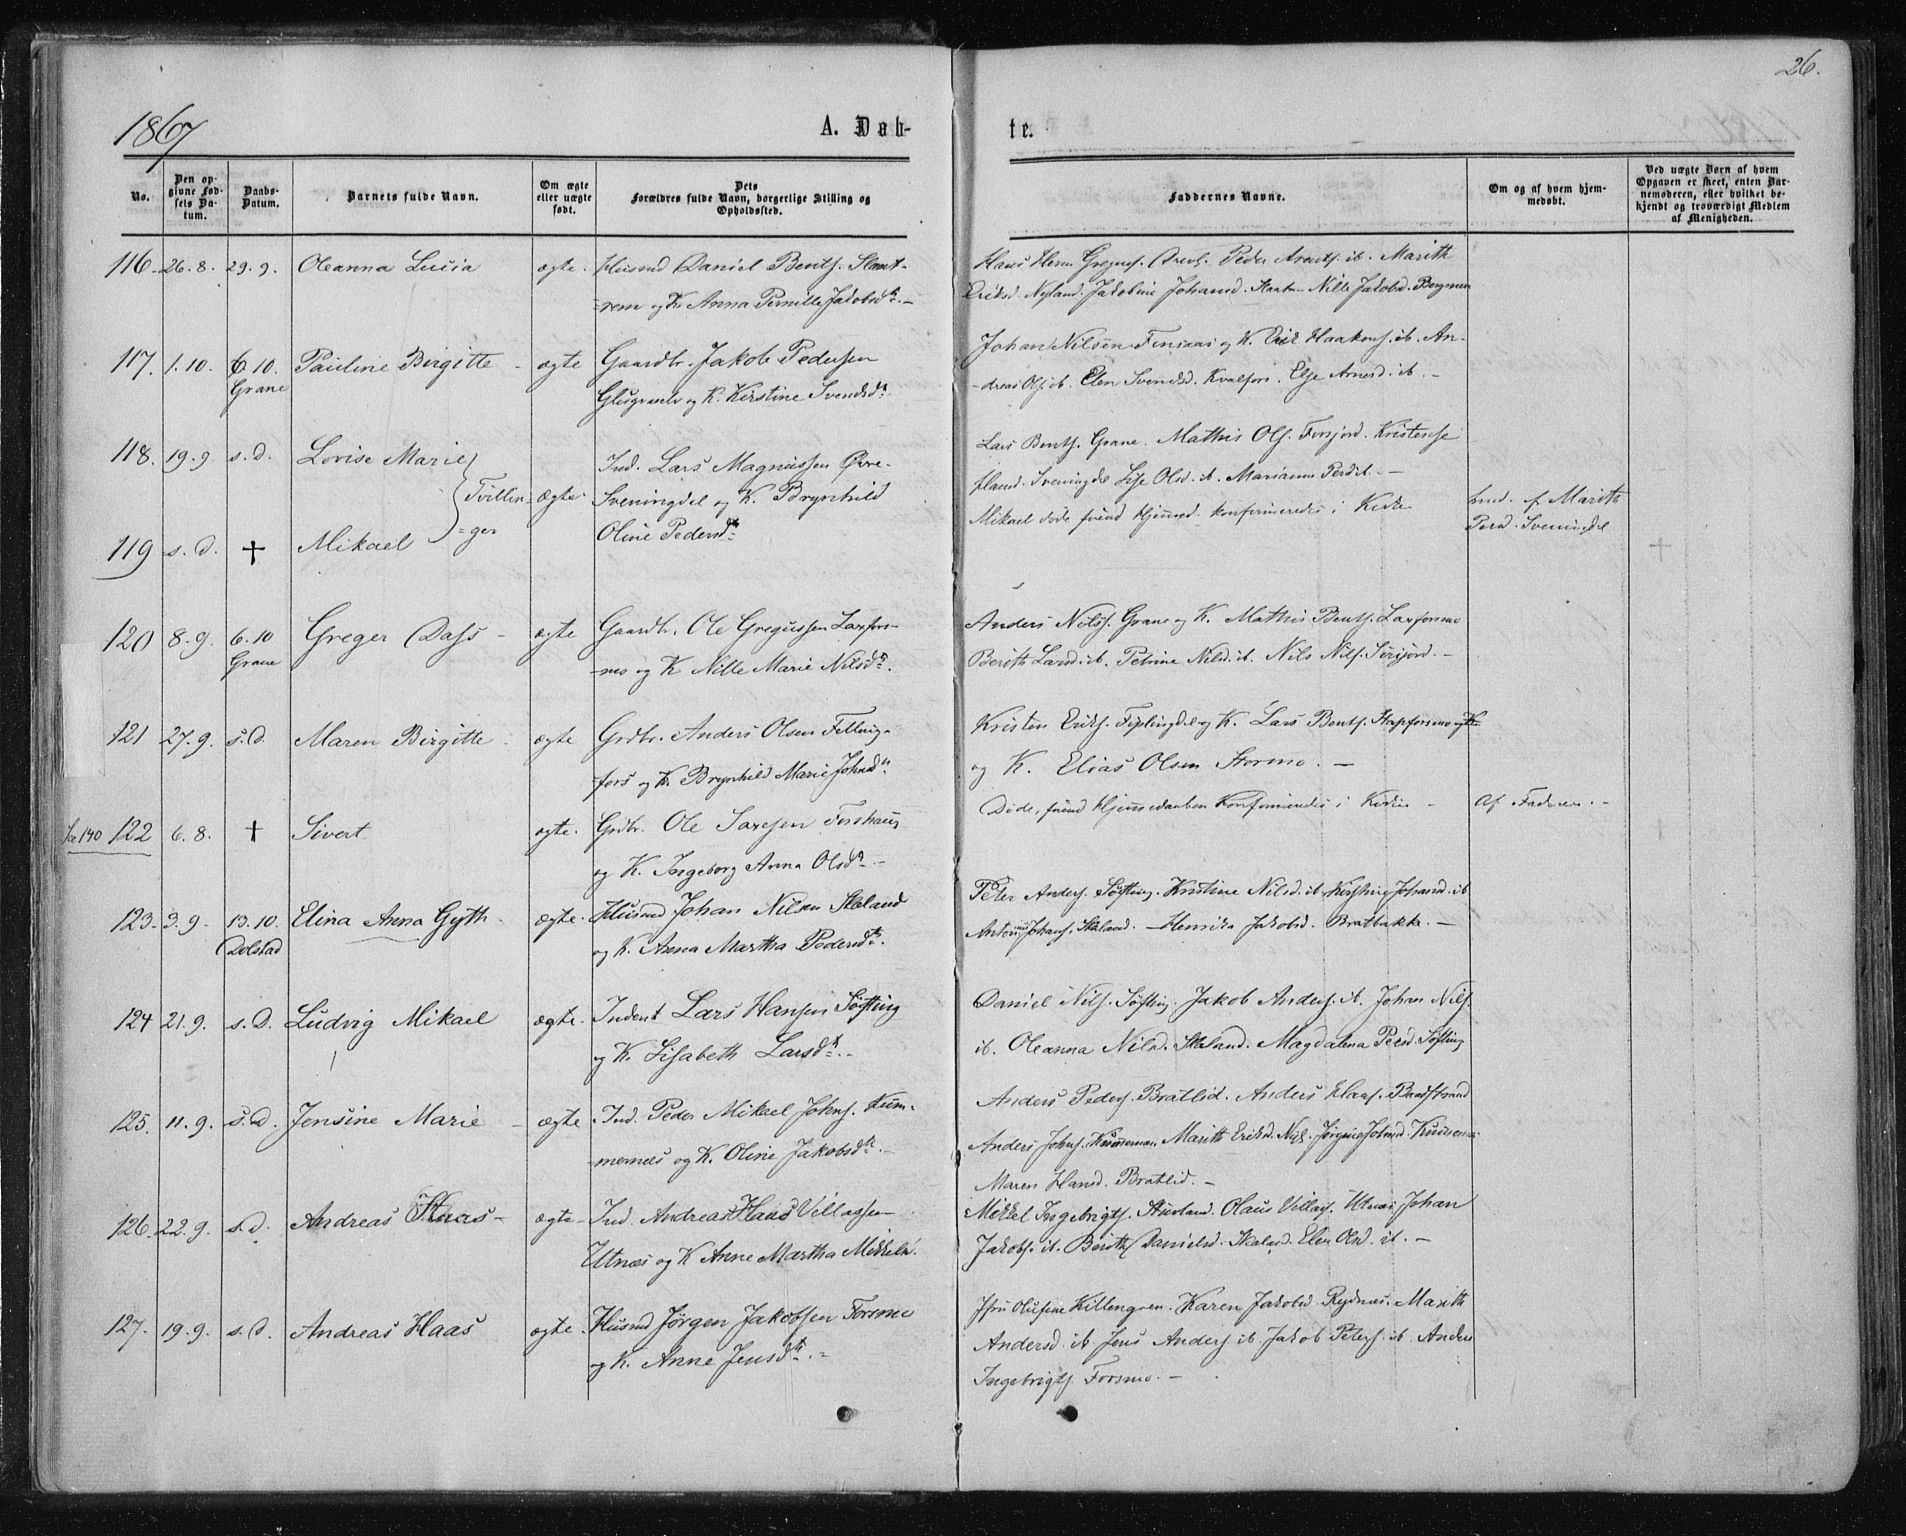 26.
1867
A. Døb-
te.
No.
Den op-
givne Fød-
sels Da-
tum.
Daabs-
Datum.
Barnets fulde Navn.
Om ægte
eller uægte
født.
Dets
Forældres fulde Navn, borgerlige Stilling og
Opholdssted.
Faddernes Navne.
Om og af hvem hjem-
medøbt.
Ved uægte Børn af hvem
Opgaven er skeet, enten Bar-
nemoderen, eller hvilket be-
kjendt og troværdigt Medlem
af Menigheden.
116. 26.8. 29.9. Oleanna Lucia ægte. Husmd Daniel Bents.
og K. Anna Pernille Jakobsd. –
Hans Herm Peder Arents. ib. Marith
Eriksd. Nyland. Jakobine Johansd. Nille Jakobsd.
117. 1.10. 6.10. Pauline Birgitte – ægte Gaardbr. Jakob Pedersen
Grane
og K. Kirstine Svendsd.
Johan Nilsen og K. Erik Haakons. ib. An-
-dreas Ols. ib. Elen Svendsd. Kvalfors. Else Arnesd. ib. –
118. 19.9 s.d. Lovise Marie Tvillin- ægte Ind. Lars Magnussen Øvre-
Sveningdal og K. Brynhild
Oline Pedersd.
Lars Bents. Grane. Mathis Ols. Forsjord.
Sveningdal Olsd. ib. Marianne Persd. ib. –
Mikael døde konfirmeredes i Kirke
af Marith
Persd. Sveningdal
119 s.d. † Mikael =ger
120 8.9. 6.10 Greger Dass – ægte Gaardbr. Ole Gregussen Laxfors-
Grane
-mo og K Nille Marie Nilsd.
Anders Nilss. Grane og K. Mathis Bents. Laxforsmo
Berith Larsd. ib. Petrine Nilsd. ib. Nils Nils. –
121 27.9. s.d. Maren Birgitte – ægte Grdbr. Anders Olsen Felling-
fors og K. Brynhild Marie Johnsd.
Kristen Eriks. Fiplingdal og K. Lars Bents.
og K. Elias Olsen Stormo. –
122 6.8. † Sivert ægte. Grdbr. Ole
og K. Ingeborg Anna Olsd. –
Døde, Hjemmedaaben konfirmeredes i Kirke –
Af Faderen. –
123. 3.9. 13.10. Elina Anna Gyth. ægte. Husmd Johan Nilsen Skaland
Dolstad
og K. Anna Martha Pedersd.
Peter Anders. Søfting. Kristine Nilsd. ib. Kirstine Johansd. ib
Johans. Skaland. – Henrika Jakobsd. Bratbakke. –
124 21.9. s.d. Ludvig Mikael ægte. Inderst Lars Hansen Søfting
og K. Lisabeth Larsd. –
Daniel Nils. Søfting. Jakob Anders. ib. Johan Nils.
ib. Oleanna Nilsd. Skaland. Magdalena Persd. Søfting
125. 11.9. s.d. Jensine Marie – ægte Ind. Peder Mikael Johns. Kum-
-mernæs og K. Oline Jakobsd. –
Anders Peders. Bratlid. Anders
Anders Johns. Marith Eriksd. Nyl. Jørgine Johnsd.
Maren Hansd. Bratlid. –
126. 22.9. s.d. Andreas Haas – ægte – Ind. Andreas Haas Villassen
Utnæs og K Anne Martha Mikkelsd.
Mikkel Ingebrigts. Olaus Villas. Utnæs Johan
Jakobs. ib. Berith Danielsd. Skaland. Elen Olsd. ib. –
127. 19.9. s.d. Andreas Haas ægte. Husmd Jørgen Jakobsen Forsmo
og K. Anne Jensd. –
Jfru Olufine Killengren. Karen Jakobsd. Rydnæs. Marith
Andersd. ib Jens Anders ib Jakob Peters. ib Anders
Ingebrigts. Forsmo. –